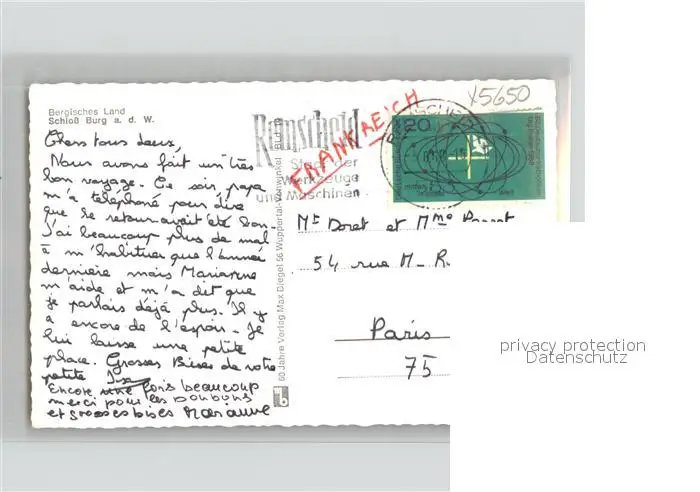 x5650
Bergisches Land
Schloß Burg a. d. W.
Remscheid
Stadt der
Werkzeuge
und Maschinen
FRANKREICH
20
Chers tous deux,
Nous avons fait un très
bon voyage. Ce soir, papa
m'a téléphoné pour dire
que le retour avait été bon.
J'ai beaucoup plus de mal
à m'habituer que l'année
dernière mais Marianne
m'aide et m'a dit que
je parlais déjà plus. Il y
a encore de l'espoir. Je
lui laisse une petite
place. Grosses Bises de votre
petite
Encore une fois beaucoup
merci pour les bonbons
et grosses bises Marianne
60 Jahre Verlag Max Biegel 56 Wuppertal-Vohwinkel
Mr Doret et Mme
54 rue M- R
Paris
75
privacy protection
Datenschutz